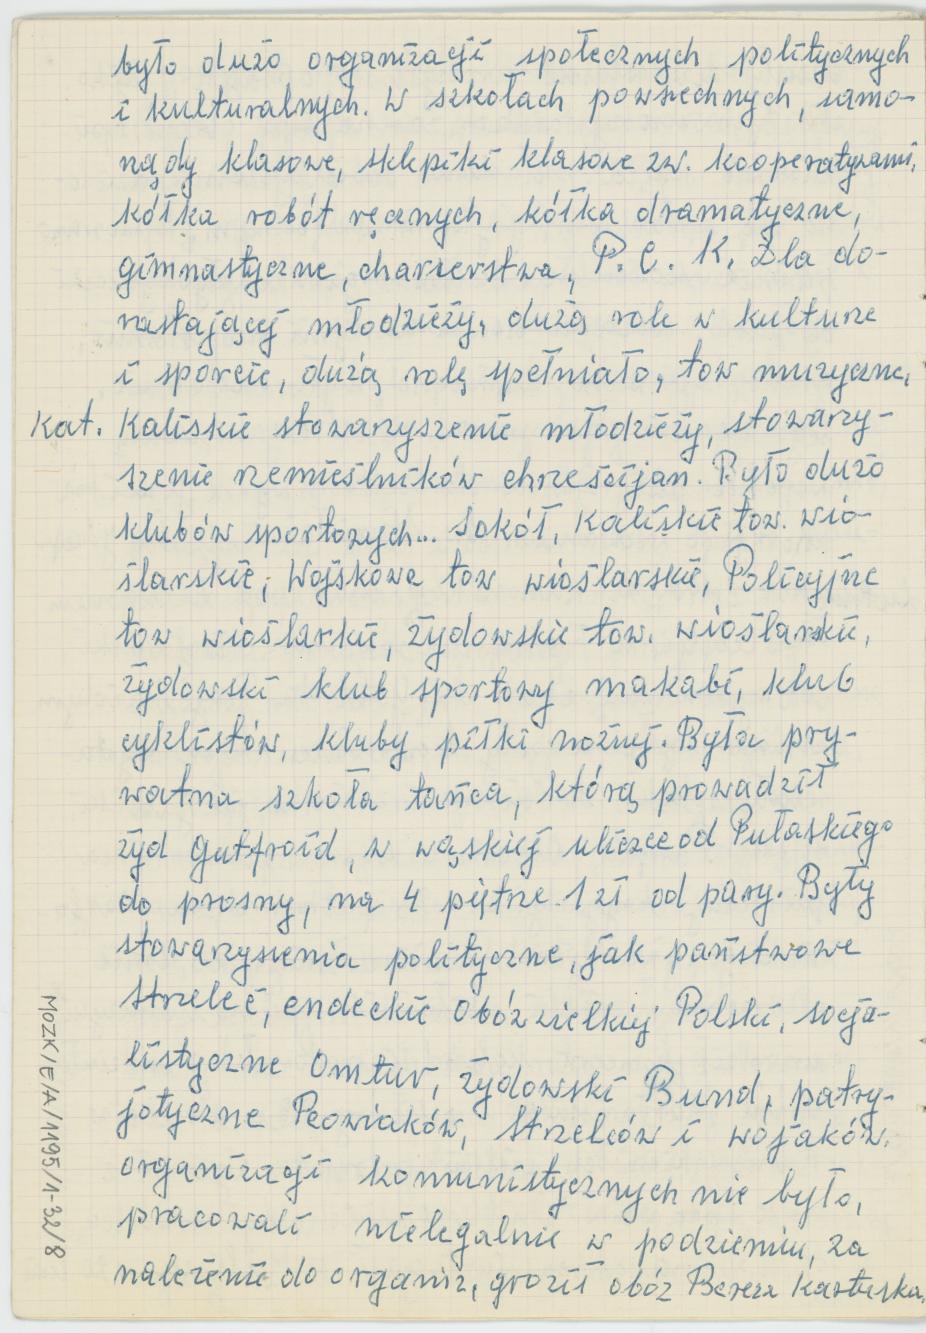 było dużo organizacji społecznych politycznych
i kulturalnych. W szkołach powszechnych, samo-
rządy klasowe, sklepiki klasowe zw. kooperatywami,
kółka robót ręcznych, kółka dramatyczne,
gimnastyczne, charzerstwa, P. C. K. Dla do-
rastającej młodzieży, dużą role w kulturze
i sporcie, dużą rolę spełniało, tow muzyczne,
Kat. Kaliskie stowarzyszenie młodzieży, stowarzy-
szenie rzemieślników chrześcijan. Było dużo
klubów sportowych... Sokół, Kaliskie tow. wio-
ślarskie, Wojskowe tow wioślarskie, Policyjne
tow wioślarkie, żydowskie tow. wioślarskie,
żydowski klub sportowy makabi, klub
cyklistów, kluby piłki nożnej. Była pry-
watna szkoła tańca, którą prowadził
żyd Gutfroid, w wąskiej uliczce od Pułaskiego
do prosny, na 4 piętrze 1 zł od pary. Były
stowarzysienia polityczne, jak państwowe
strzeleć, endeckie Obóz wielkiej Polski, socja-
listyczne Omtur, żydowski Bund, patry-
jotyczne Peowiaków, Strzelców i wojaków.
organizacji komunistycznych nie było,
pracowali nielegalnie w podziemiu, za
należenie do organiz, groził obóz Bereza Kartuska.
MOZK/E/A/1195/1-32/8